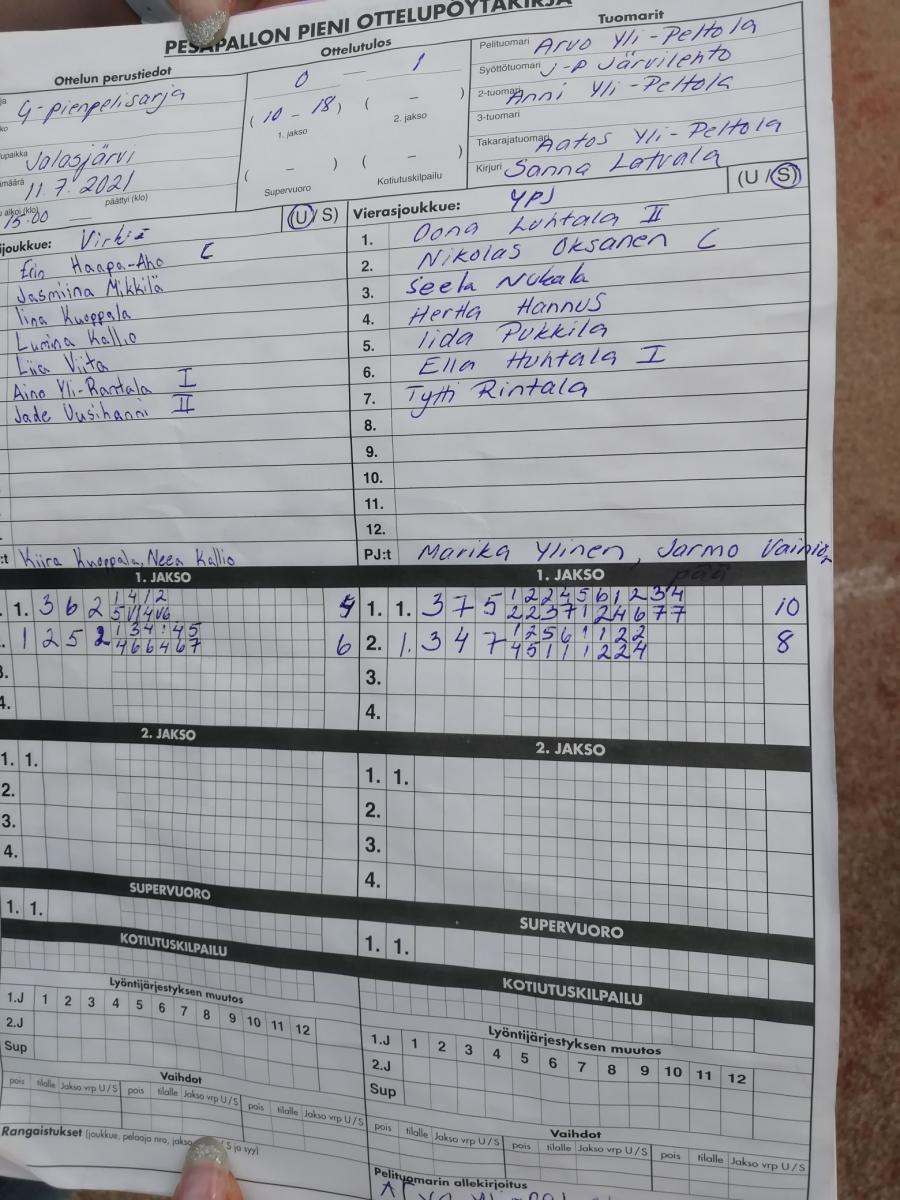 PESÄPALLON PIENI OTTELUPÖYTÄKIRJA
Ottelun perustiedot
G-pienpelisarja
Jalasjärvi
11.7.2021
alkoi (klo) päättyi (klo)
15:00 —
Ottelutulos
0 – 1
( 10 – 18 ) ( – )
1. jakso 2. jakso
( – ) ( – )
Supervuoro Kotiutuskilpailu
Tuomarit
Pelituomari Arvo Yli-Peltola
Syöttötuomari J-P Järvilehto
2-tuomari Anni Yli-Peltola
3-tuomari
Takarajatuomari Aatos Yli-Peltola
Kirjuri Sanna Latvala
joukkue: Virkiä (U/S)
Erin Haapa-Aho C
Jasmiina Mikkilä
Iina Kuoppala
Lumina Kallio
Liia Viita
Aino Yli-Rantala I
Jade Uusihanni II
:t Kiira Kuoppala, Neea Kallio
Vierasjoukkue: YPJ (U/S)
1. Oona Luhtala II
2. Nikolas Oksanen C
3. Seela Nukala
4. Hertta Hannus
5. Iida Pukkila
6. Ella Huhtala I
7. Tytti Rintala
8.
9.
10.
11.
12.
PJ:t Marika Ylinen, Jarmo Vainionpää
1. JAKSO
1. 3 6 2
1 2 5 2 6
3.
4.
1. JAKSO
1. 1. 3 7 5 1 2 2 4 5 6 1 2 3 4 10
2 2 3 7 1 2 4 6 7 7
2. 1. 3 4 7 1 2 5 6 1 1 2 2 8
4 5 1 1 1 2 2 4
3.
4.
2. JAKSO
1. 1.
2.
3.
4.
2. JAKSO
1. 1.
2.
3.
4.
SUPERVUORO
1. 1.
SUPERVUORO
1. 1.
KOTIUTUSKILPAILU
KOTIUTUSKILPAILU
Lyöntijärjestyksen muutos
1.J 1 2 3 4 5 6 7 8 9 10 11 12
2.J
Sup
Lyöntijärjestyksen muutos
1.J 1 2 3 4 5 6 7 8 9 10 11 12
2.J
Sup
Vaihdot
pois tilalle Jakso vrp U/S pois tilalle Jakso vrp U/S pois tilalle Jakso vrp U/S
Vaihdot
pois tilalle Jakso vrp U/S pois tilalle Jakso vrp U/S pois tilalle Jakso vrp U/S
Rangaistukset (joukkue, pelaaja nro, jakso S ja syy)
Pelituomarin allekirjoitus